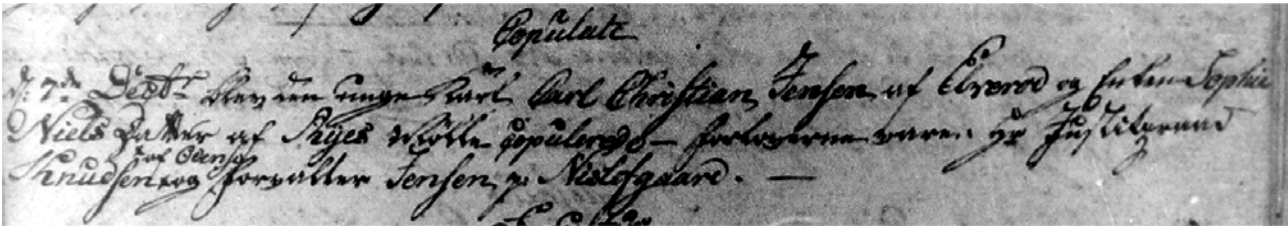 Copulate
d: 7de Septr blev den unge Karl Carl Christian Jensen af Elverod og Enken Sophie
Niels Datter af Mølle copulered – Forloverne vare: Hr Justitsraad
af Odense
Knudsen og Forvalter Jensen p: Nislefgaard. —